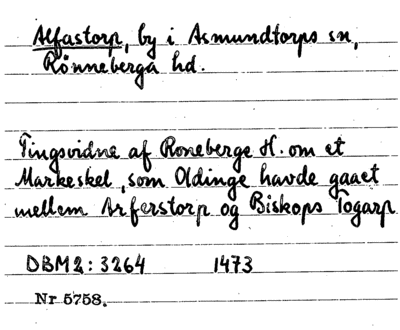 Alfastorp, by i Asmundtorps sn,
Rönneberga hd.
Tingsvidne af Roneberge H. om et
Markeskel, som Oldinge havde gaaet
mellem Arferstorp og Biskops Togarp
DBM2: 3264 1473
Nr 5758.